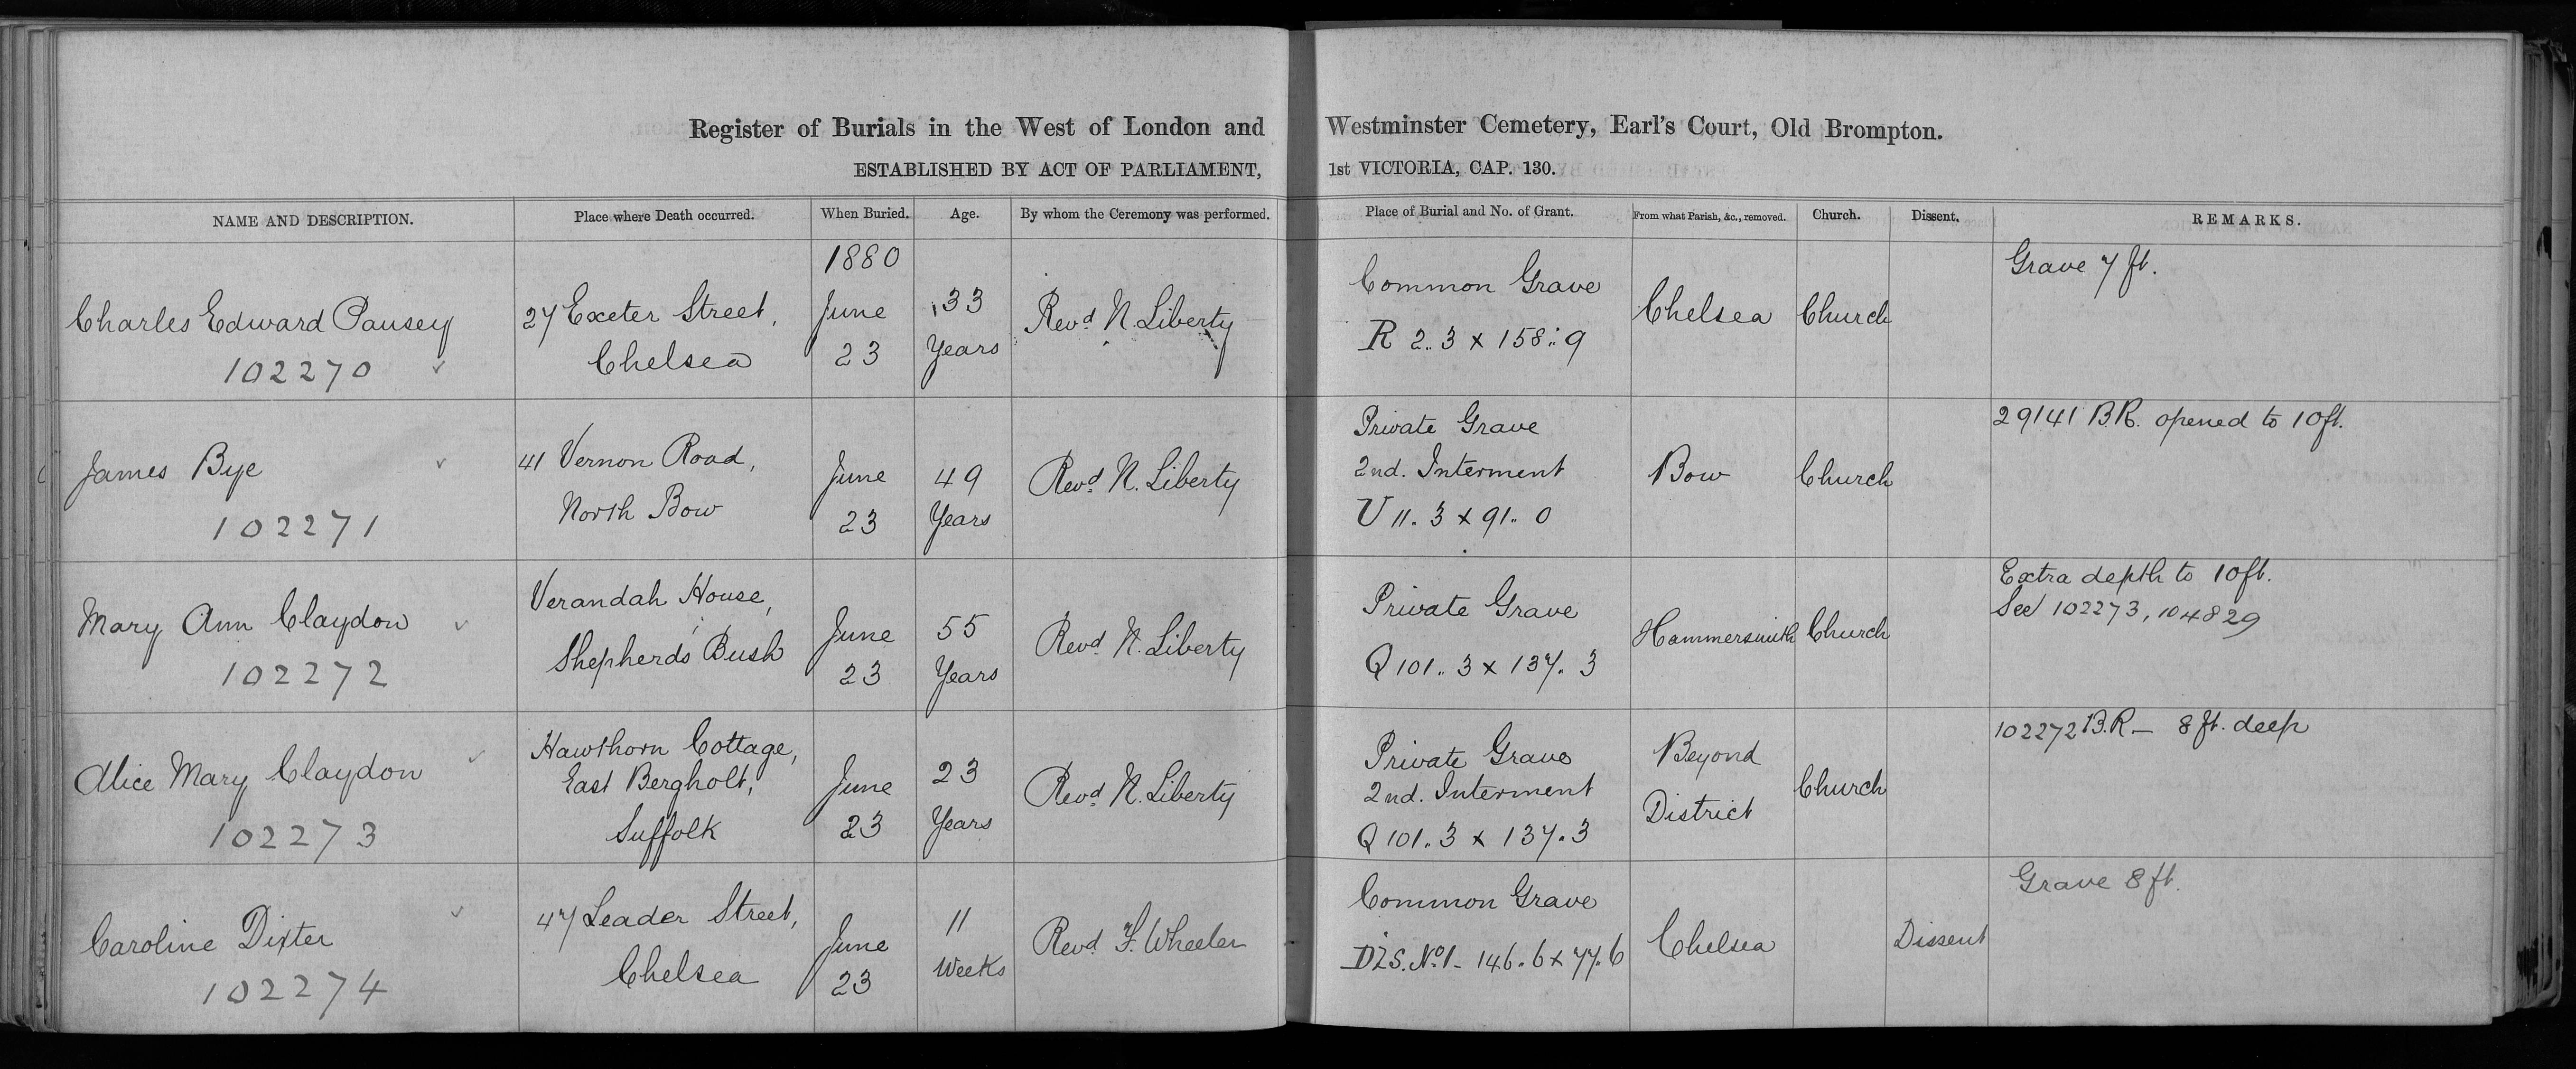 Register of Burials in the West of London and Westminster Cemetery, Earl's Court, Old Brompton.
ESTABLISHED BY ACT OF PARLIAMENT, 1st VICTORIA, CAP. 130.
NAME AND DESCRIPTION. Place where Death occurred. When Buried. Age. By whom the Ceremony was performed. Place of Burial and No. of Grant. From what Parish, &c., removed. Church. Dissent. REMARKS.
1880
Charles Edward Pausey
102270
27 Exeter Street,
Chelsea
June
23
33
Years
Revd. N. Liberty
Common Grave
R 2.. 3 x 158.. 9
Chelsea
Church
Grave 7 ft.
James Bye
102271
41 Vernon Road,
North Bow
June
23
49
Years
Revd. N. Liberty
Private Grave
2nd. Interment
U 11.. 3 x 91.. 0
Bow
Church
29141 B.R. opened to 10ft.
Mary Ann Claydon
102272
Verandah House,
Shepherds' Bush
June
23
55
Years
Revd. N. Liberty
Private Grave
Q 101.. 3 x 137. 3
Hammersmith
Church
Extra depth to 10ft.
See 102273, 104829
Alice Mary Claydon
102273
Hawthorn Cottage,
East Bergholt,
Suffolk
June
23
23
Years
Revd. N. Liberty
Private Grave
2nd. Interment
Q 101.. 3 x 137.. 3
Beyond
District
Church
102272 B.R - 8 ft. deep
Caroline Dixter
102274
47 Leader Street,
Chelsea
June
23
11
Weeks
Revd. F. Wheeler
Common Grave
DIS. No. 1 - 146.. 6 x 77.. 6
Chelsea
Dissent
Grave 8 ft.